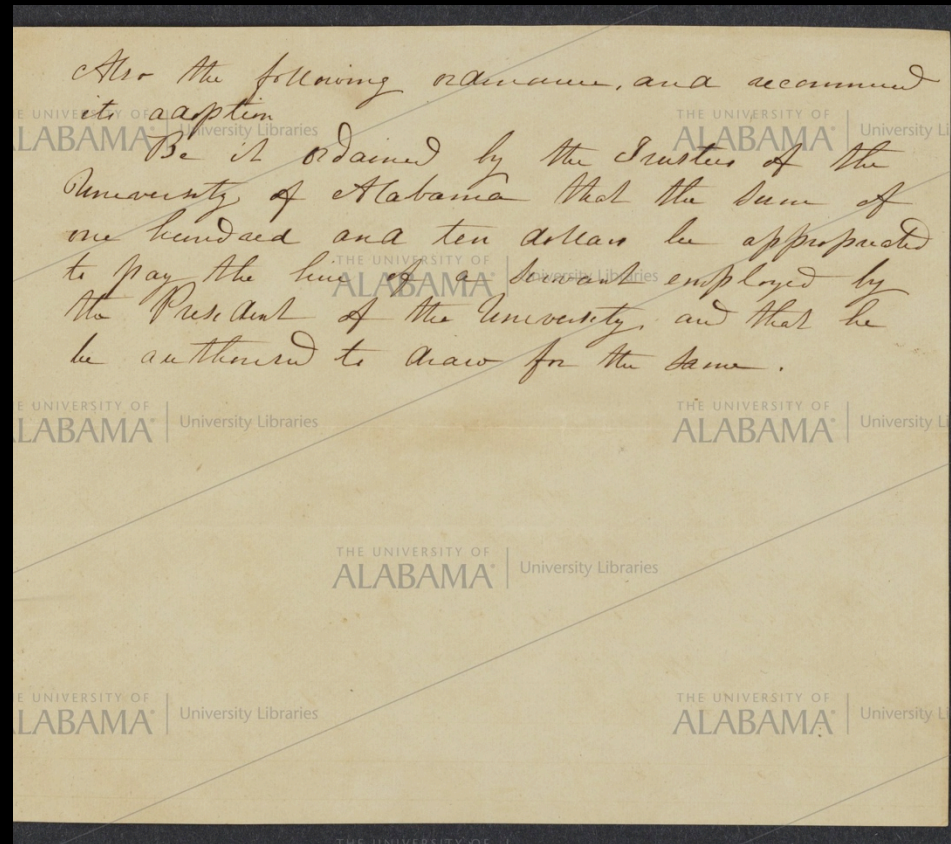 Also the following ordinance, and recommend
its adoption
Be it ordained by the Trustees of the
University of Alabama that the sum of
one hundred and ten dollars be appropriated
to pay the hire of a servant employed by
the President of the University, and that he
be authorised to draw for the same.
THE UNIVERSITY OF
ALABAMA
University Libraries